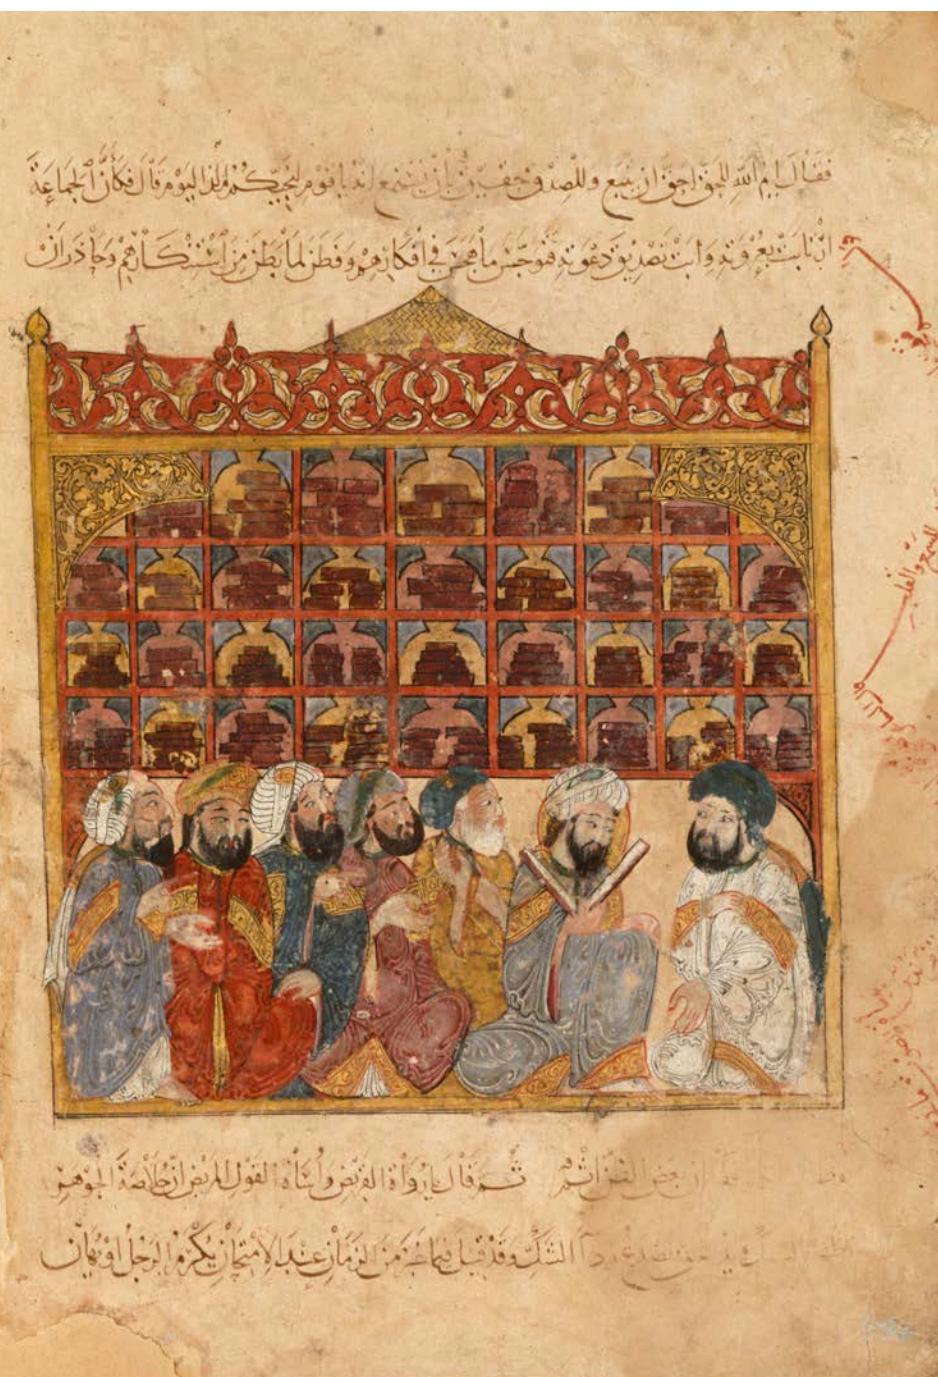 فقال ايم الله للحق احق ان يتبع وللصدق حقيق بان يستمع انه يا قوم لنجيكم مذ اليوم قال فكأن الجماعة
ارتابت بعزوته وابت تصديق دعوته فتوجس ما هجس في افكارهم وفطن لما بطن من استنكارهم وحاذر ان
ان بعض الظن اثم ثم قال يا رواة القريض واساة القول المريض ان خلاصة الجوهر
تظهر بالسبك ويد الحق تصدع ردآ الشك وقد قيل فيما غبر من الزمان عند الامتحان يكرم الرجل او يهان